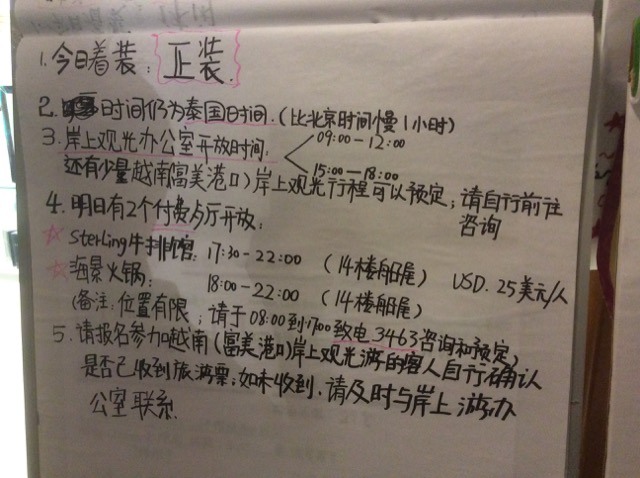 1.今日着装：正装.
2.时间仍为泰国时间.(比北京时间慢1小时)
3.岸上观光办公室开放时间: 09:00-12:00
15:00-18:00
还有少量越南(富美港口)岸上观光行程可以预定；请自行前往
咨询
4.明日有2个付费歺厅开放:
☆Sterling牛排馆: 17:30-22:00 (14楼船尾) USD.25美元/人
☆海景火锅: 18:00-22:00 (14楼船尾)
(备注:位置有限；请于08:00到1700致电3463咨询和预定)
5.请报名参加越南(富美港口)岸上观光游的客人自行确认
是否已收到旅游票；如未收到、请及时与岸上游办
公室联系.